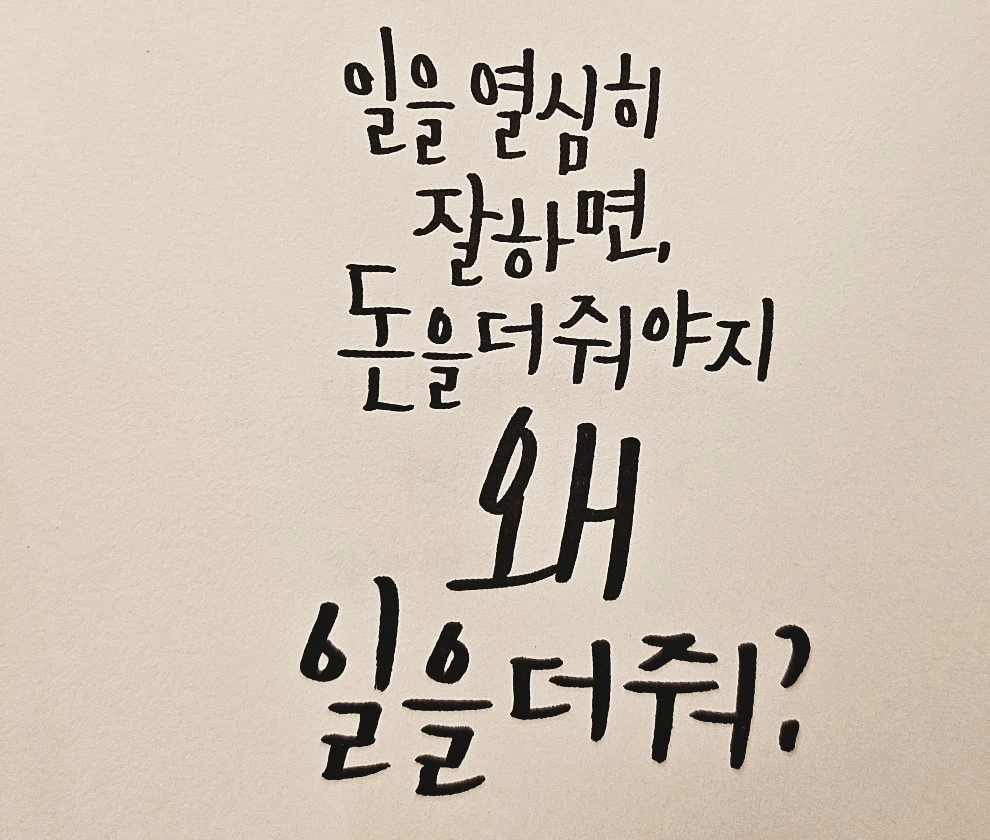 일을 열심히
잘하면,
돈을 더 줘야지
왜
일을 더 줘?